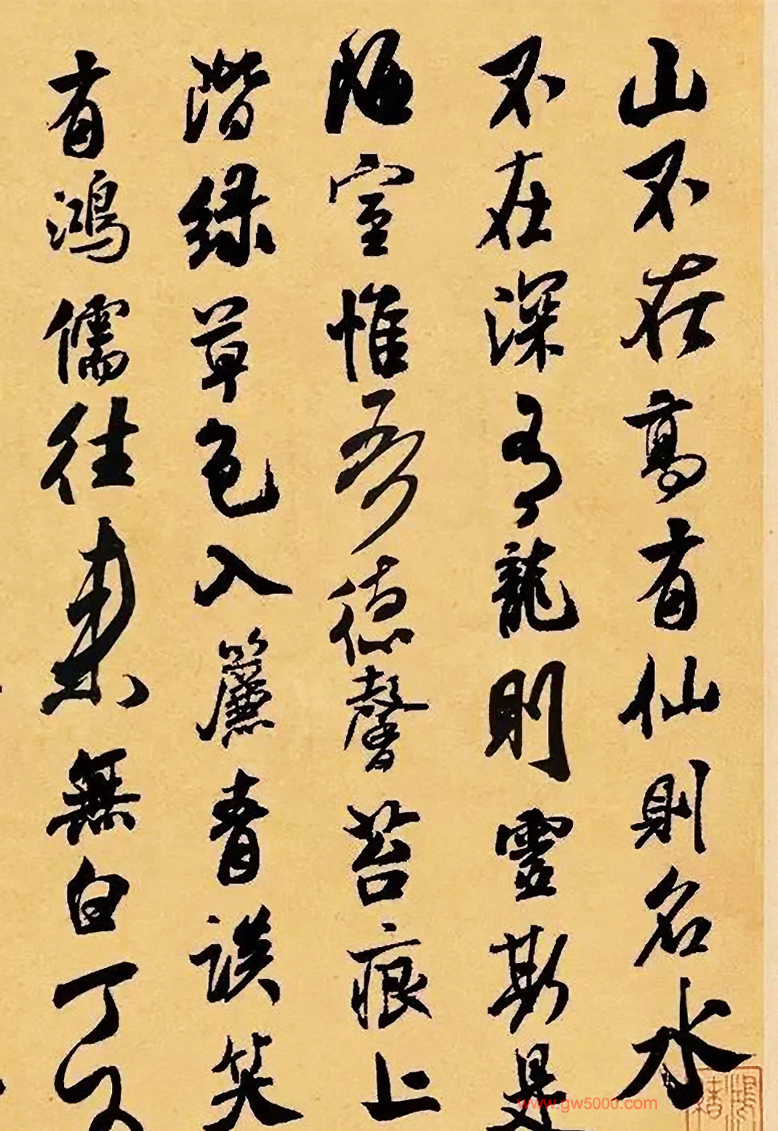 山不在高有仙則名水
不在深有龍則靈斯是
陋室惟吾德馨苔痕上
階綠草色入簾青談笑
有鴻儒往來無白丁可
www.gw5000.com